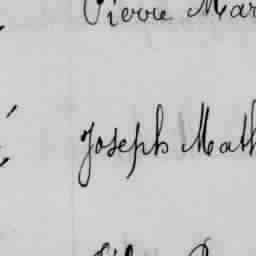 Pierre Mar
Joseph Math